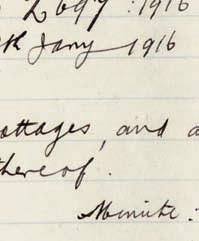 2697 : 1916
th Jany 1916
ottages, and a
thereof.
Minute :